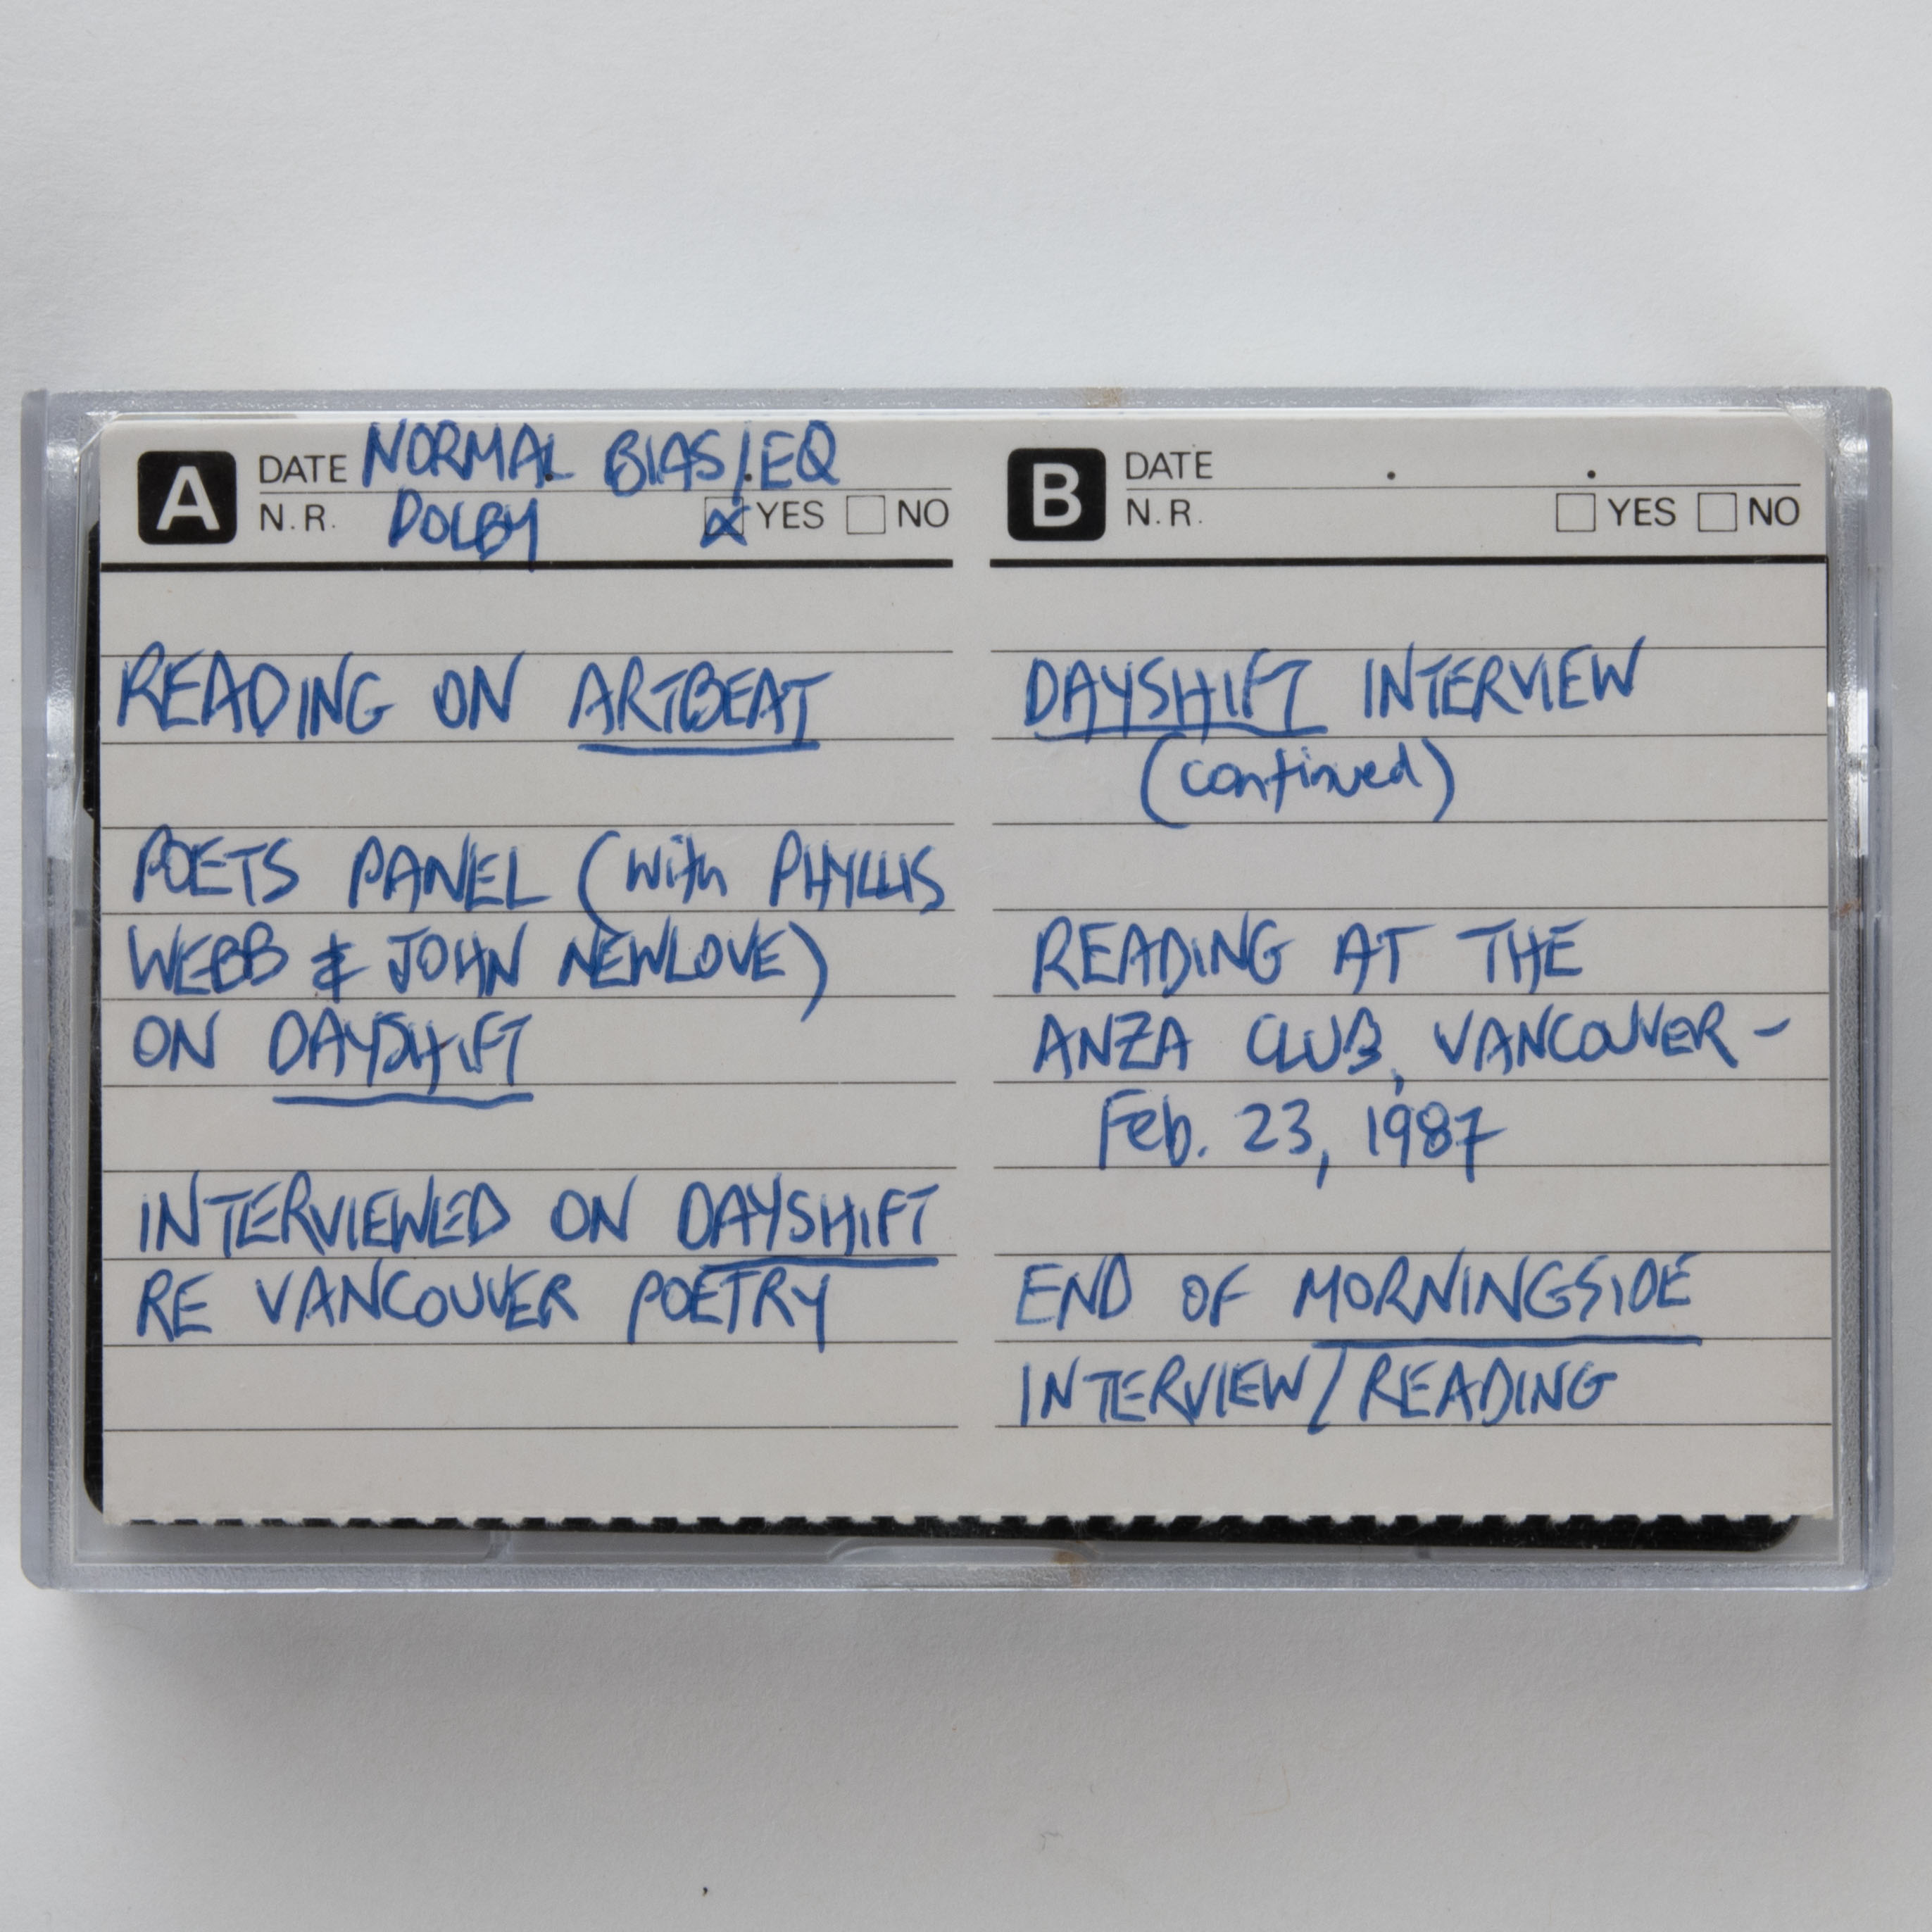 A DATE NORMAL BIAS/EQ
N.R. DOLBY ☒ YES ☐ NO
READING ON ARTBEAT
POETS PANEL (with PHYLLIS
WEBB & JOHN NEWLOVE)
ON DAYSHIFT
INTERVIEWED ON DAYSHIFT
RE VANCOUVER POETRY
B DATE . .
N.R. ☐ YES ☐ NO
DAYSHIFT INTERVIEW
(continued)
READING AT THE
ANZA CLUB, VANCOUVER -
Feb. 23, 1987
END OF MORNINGSIDE
INTERVIEW/READING